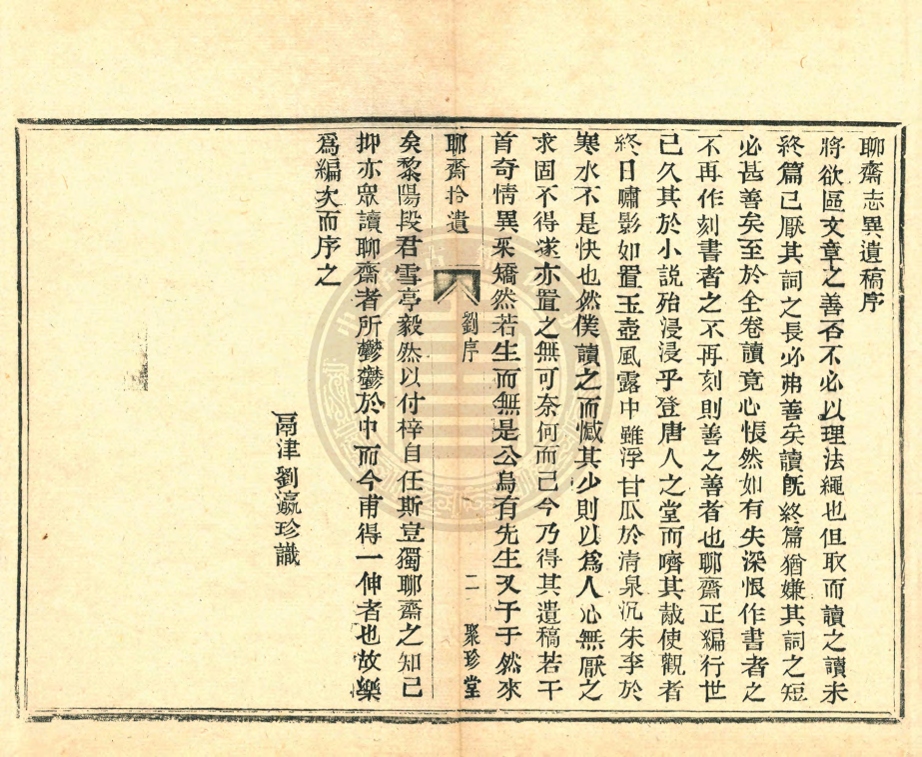 聊齋志異遺稿序
將欲區文章之善否不必以理法繩也但取而讀之讀未
終篇已厭其詞之長必弗善矣讀旣終篇猶嫌其詞之短
必甚善矣至於全卷讀竟心悵然如有失深恨作書者之
不再作刻書者之不再刻則善之善者也聊齋正編行世
已久其於小説殆浸浸乎登唐人之堂而嚌其胾使觀者
終日嘯影如置玉壺風露中雖浮甘瓜於清泉沉朱李於
寒水不是快也然僕讀之而憾其少則以爲人心無厭之
求固不得遂亦置之無可奈何而已今乃得其遺稿若干
首奇情異采矯然若生而無是公烏有先生又于于然來
聊齋拾遺
劉序
二
聚珍堂
矣黎陽段君雪亭毅然以付梓自任斯豈獨聊齋之知己
抑亦眾讀聊齋者所鬱鬱於中而今甫得一伸者也故樂
爲編次而序之
鬲津劉瀛珍識